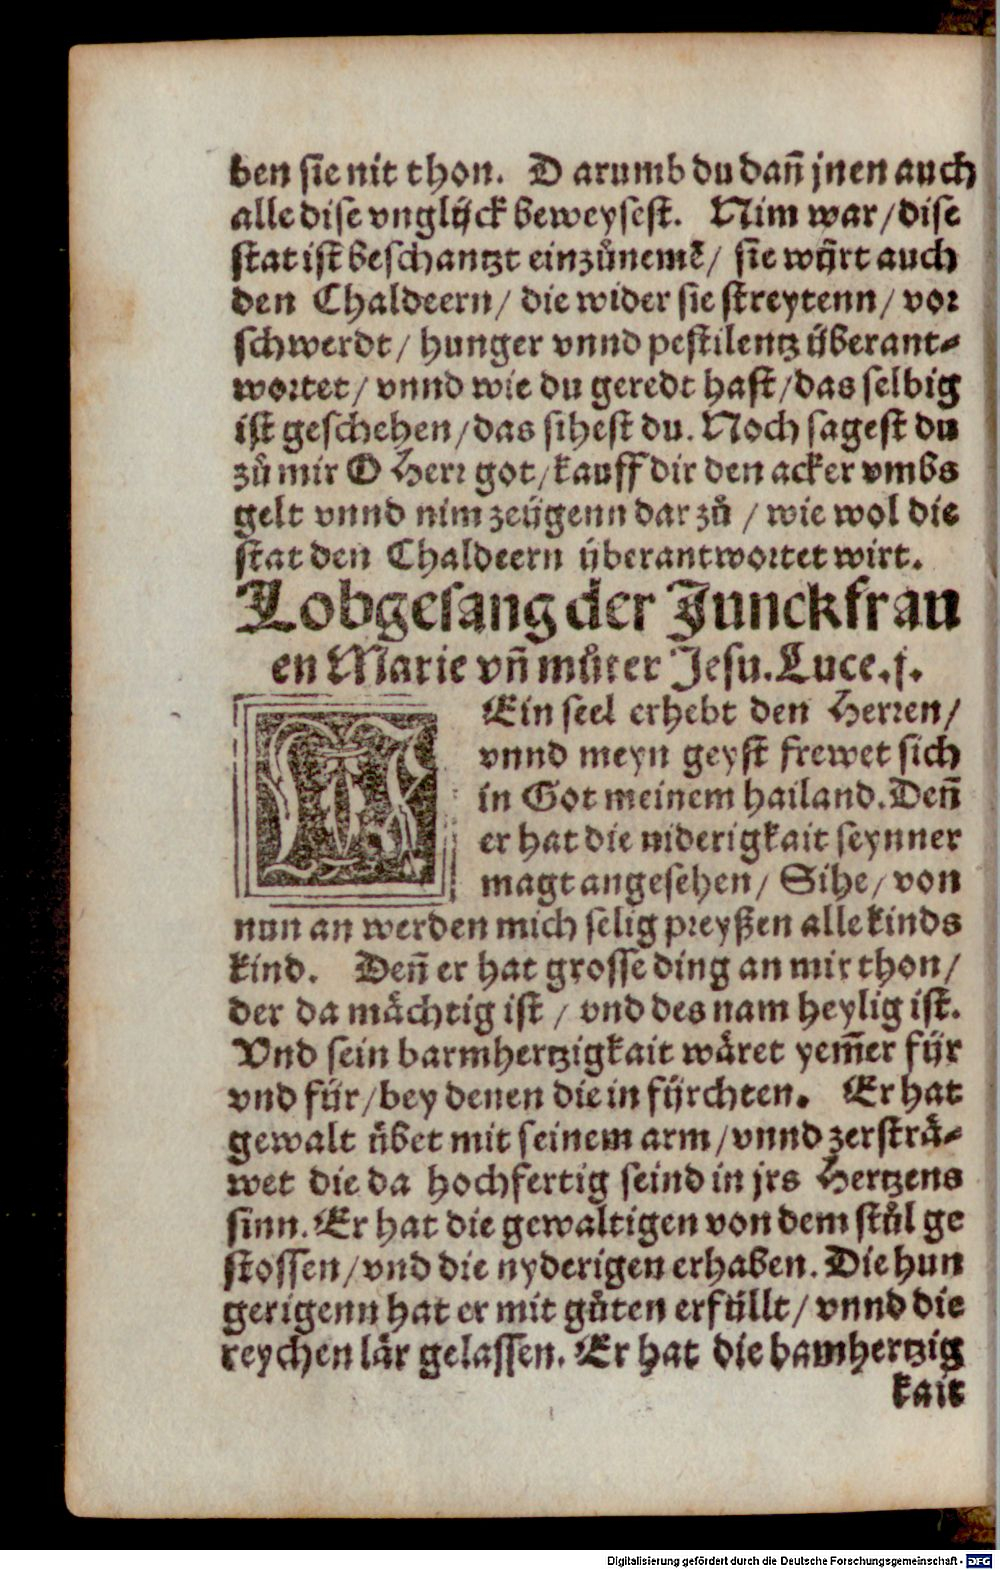 ben sie nit thon. Darumb du dañ jnen auch
alle dise vnglück beweysest. Nim war/dise
stat ist beschantzt einzůnemẽ/ sie wÿrt auch
den Chaldeern/ die wider sie streytenn/ vor
schwerdt/ hunger vnnd pestilentz überant⸗
wortet/ vnnd wie du geredt hast/das selbig
ist geschehen/das sihest du. Noch sagest du
zů mir O Herr got/kauff dir den acker vmbs
gelt vnnd nim zeügenn dar zů / wie wol die
stat den Chaldeern überantwortet wirt.
Lobgesang der Junckfrau
en Marie vñ můter Jesu. Luce.j.
MEin seel erhebt den Herren/
vnnd meyn geyst frewet sich
in Got meinem hailand. Deñ
er hat die niderigkait seynner
magt angesehen/ Sihe/ von
nun an werden mich selig preyßen alle kinds
kind. Deñ er hat grosse ding an mir thon/
der da mächtig ist / vnd des nam heylig ist.
Vnd sein barmhertzigkait wäret yem̃er für
vnd für/bey denen die in fürchten. Er hat
gewalt übet mit seinem arm/vnnd zersträ⸗
wet die da hochfertig seind in jrs Hertzens
sinn. Er hat die gewaltigen von dem stůl ge
stossen/vnd die nyderigen erhaben. Die hun
gerigenn hat er mit gůten erfüllt/ vnnd die
reychen lär gelassen. Er hat die bamhertzig
kait
Digitalisierung gefördert durch die Deutsche Forschungsgemeinschaft - DFG